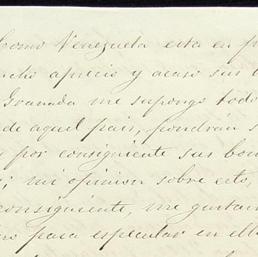 Como Venezuela esta en p
cho aprecio y acaso sus
Granada me supongo todo
de aquel pais, pondrán s
por consiguiente sus bon
; mi opinion sobre esto,
consiguiente, me gustar
para especular en ell